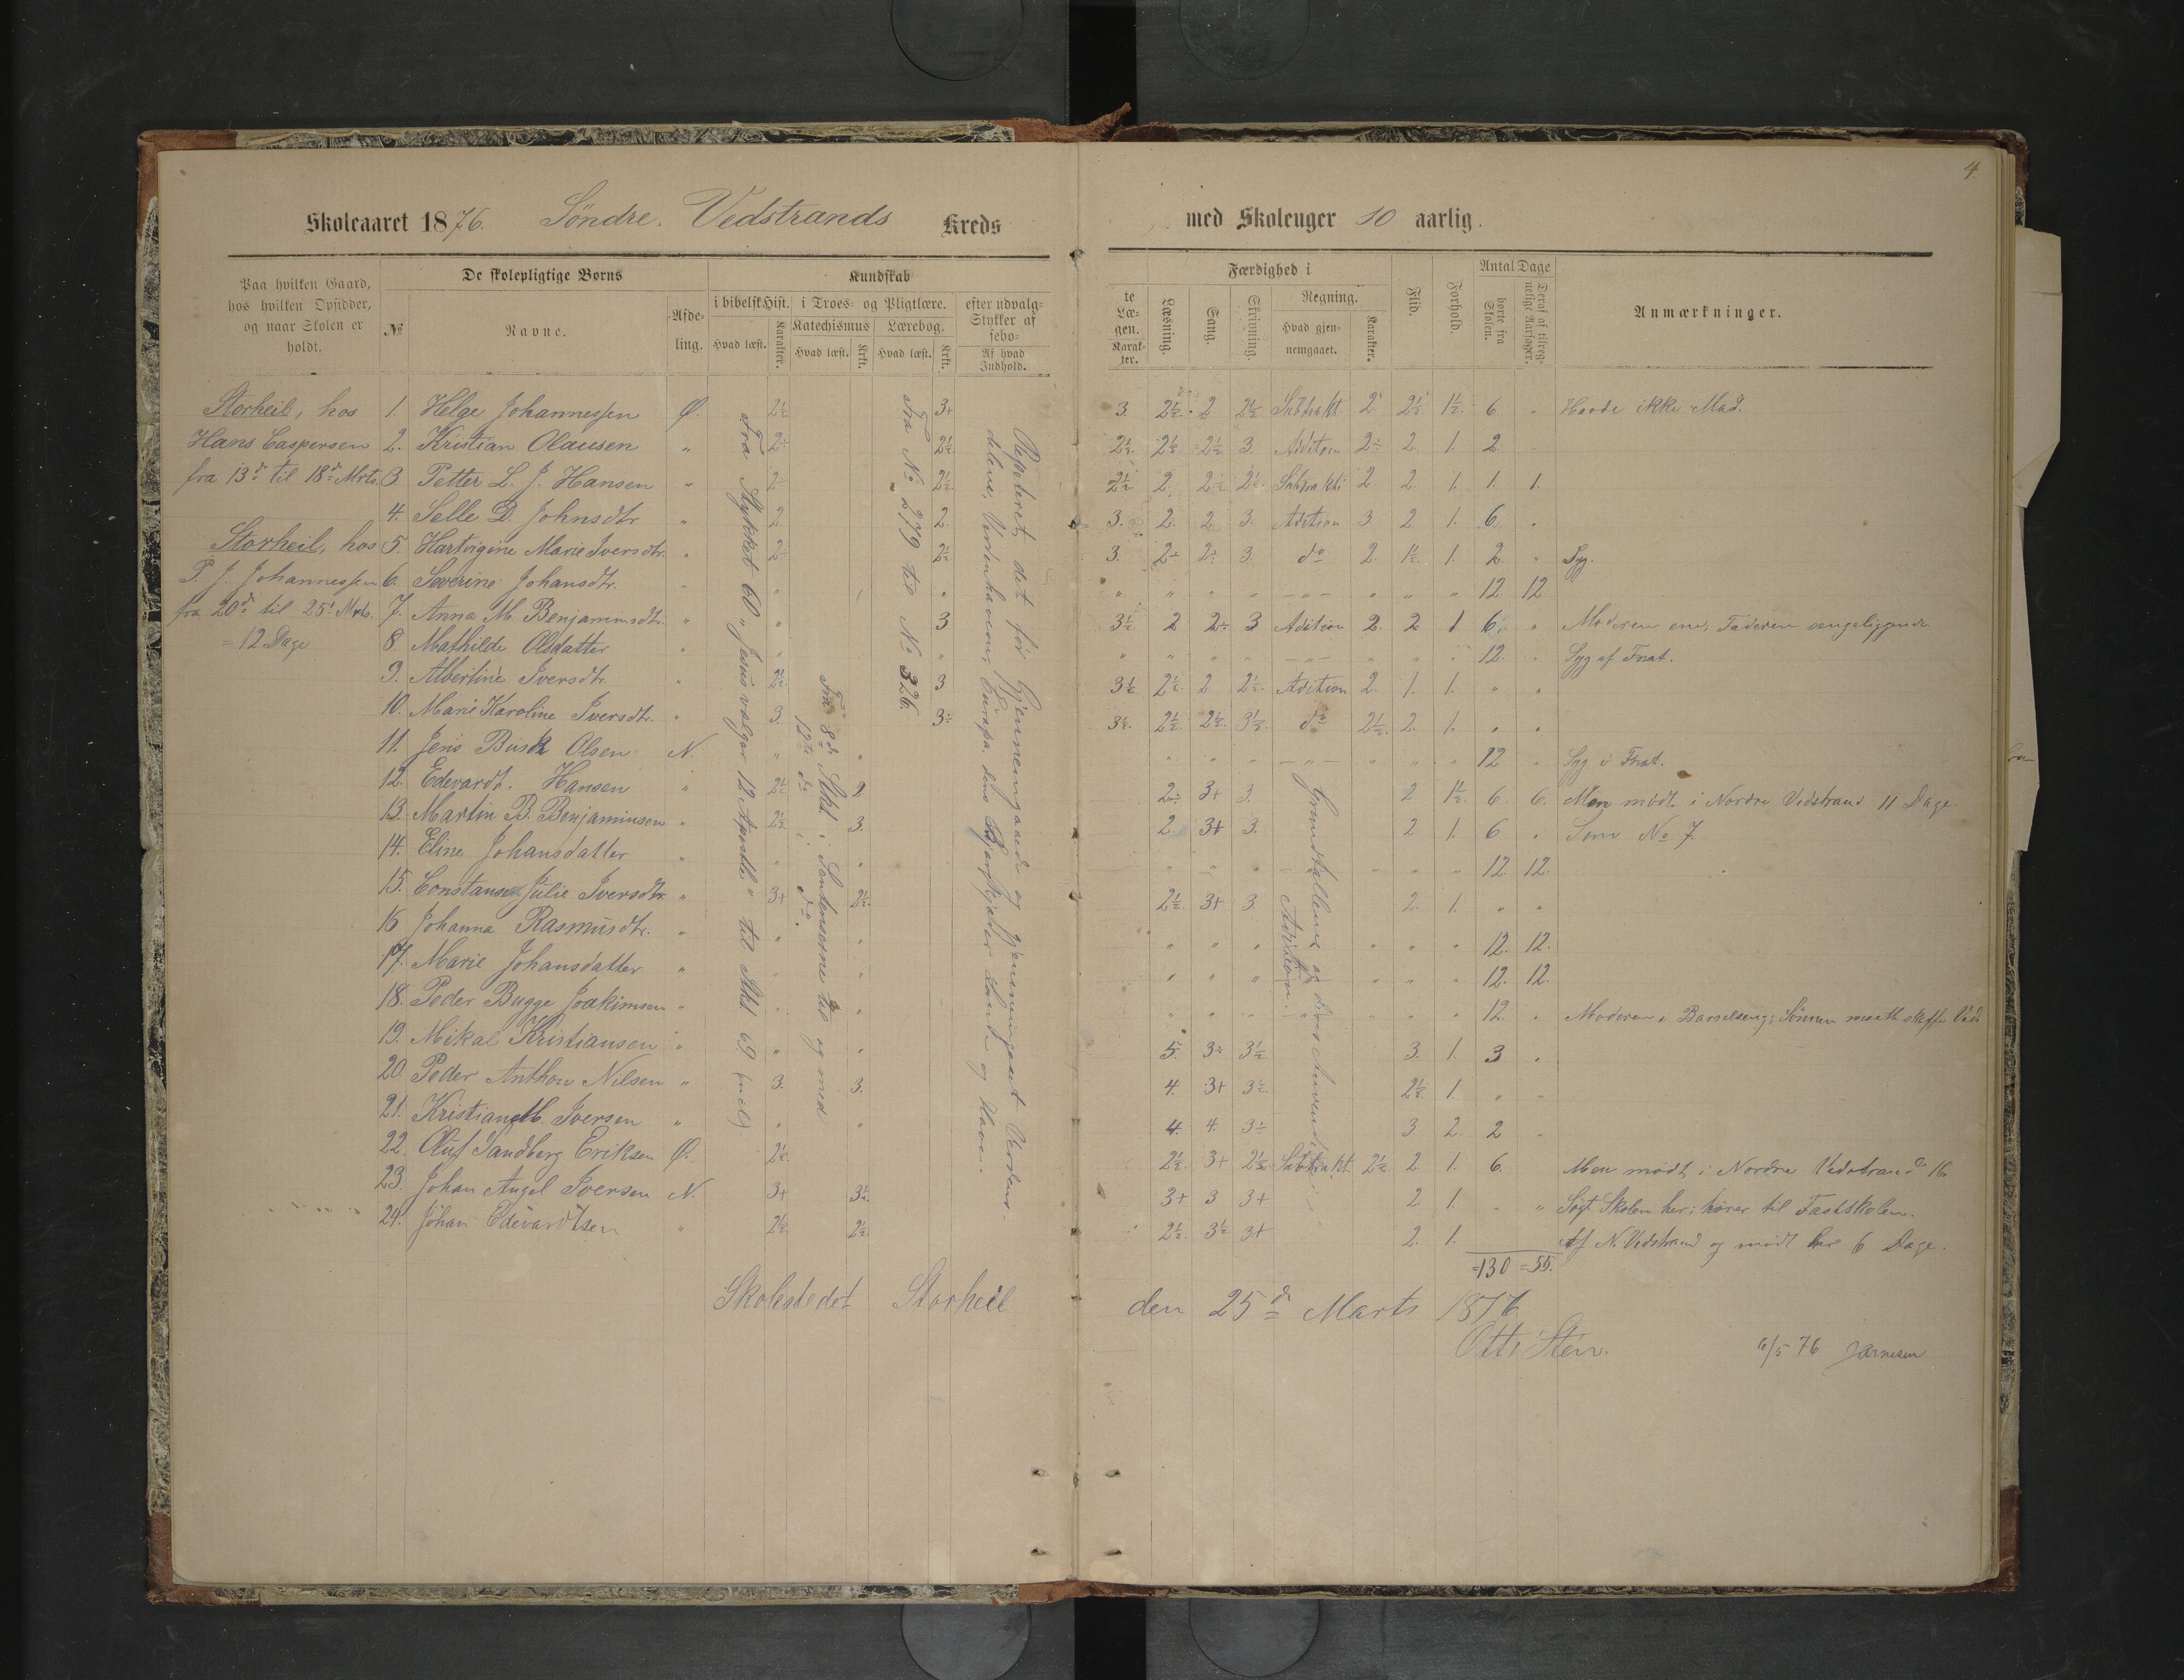 4.
Skoleaaret 1876. Søndre. Vedstrands Kreds med Skoleuger 10 aarlig.
Paa hvilken Gaard, hos hvilken Opsidder, og naar Skolen er holdt.
De skolepligtige Børns
№ Navne. Afdeling.
Kundskab
i bibelsk Hist. i Troes- og Pligtlære. efter udvalgte
Stykker af Læsebogen.
Katechismus Lærebog.
Hvad læst. Karakter. Hvad læst. Krkt. Hvad læst. Krkt. Af hvad Indhold. Karakter.
Færdighed i
Læsning. Sang. Skrivning. Regning.
Hvad gjennemgaaet. Karakter.
Flid. Forhold.
Antal Dage
borte fra Skolen. Deraf af tilregnelige Aarsager.
Anmærkninger.
Storheil, hos
Hans Caspersen
fra 13de til 18de Mrts.
Storheil, hos
P. J. Johannessen
fra 20de til 25de Mrts.
= 12 Dage
1. Helge Johannessen Ø. 2½ 3+ 3. 2½. 2 2½ Subtrakt. 2 2½ 1½. 6. " Havde ikke Mad.
2. Kristian Olausen " 2÷ 2½. 2½ 2½. 2½ 3. Adition 2÷ 2. 1. 2.
3. Petter L. J. Hansen " 2÷ 2½. 2½. 2. 2÷ 2½. Subtrakti 2 2. 1. 1. 1.
4. Selle D. Johnsdtr " 2. 2. 3. 2. 2. 3. Adition 3. 2. 1. 6. "
5. Hartvigine Marie Iversdtr. " 2÷ 2½. 3. 2÷ 2÷ 3. do 2 1½. 1. 2. " Syg.
6. Severine Johansdtr. " " " " " " " -"- " " " 12. 12.
7. Anna M. Benjaminsdtr. " " 3 3½. 2 2÷ 3 Adition 2. 2 1 6. " Moderen ene, Faderen sengeliggende
8. Mathilde Olsdatter " " " " " " " -"- " " " 12. " Syg af Fnat.
9. Albertine Iversdtr. " 2½. 3 3½ 2½. 2 2½. Adition 2. 1. 1. " "
10. Marie Karoline Iversdtr. " 3. 3÷ 3½. 2½. 2½. 3½. do 2½. 2. 1. " "
11. Jens Busk Olsen N. " " " " " -"- " " " 12 " Syg i Fnat.
12. Edevardt. Hansen " 2½ 2 2÷ 3+ 3. 2 1½. 6. 6. Men mødt i Nordre Vedstrand 11 Dage.
13. Martin B. Benjaminsen " 2½ 3. 2. 3+ 3. 2 1. 6 " Som No 7.
14. Eline Johansdatter " " " " " " " " " 12. 12.
15. Constanse Julie Iversdtr. " 3+ 2½. 2½. 3+ 3. 2. 1. " "
16 Johanna Rasmusdtr. " " " " " " " " " 12. 12.
17. Marie Johansdatter " " " " " " " " " 12. 12.
18. Peder Bugge Joakimsen " " " " " " " " " 12. " Moderen i Barselseng; Sønnen maatte skaffe Ved
19. Mikal Kristiansen " " " 5. 3÷ 3½ 3. 1. 3 "
20. Peder Anthon Nilsen " 3. 3. 4. 3+ 3½ 2½. 1. " "
21. Iversen " " " 4. 4. 3÷ 3 2. 2 "
22. Oluf Sandberg Eriksen Ø. 2½. 2½. 3+ 2½ Subtrakt. 2½ 2. 1. 6. Men mødt i Nordre Vedstrand 16
23. Johan Angel Iversen N. 3+ 3½. 3+ 3 3+ 2 1. " " Søgt Skolen her; hører til Fastskolen.
24. Johan Edevardtsen " 2½. 2½. 2½. 3½ 3+ 2. 1. Af N. Vedstrand og mødt her 6 Dage.
=130 =55.
Fra Stykket 60 "Jesus vælger 12 Apostle" til Stkt 69. incl)
Fra 8de Stkt. i Sentenserne til og med
12te do i do.
Fra No 279 til No 326.
Repeteret det før Gjennemgaaede og gjennemgaaet Verdens-
delene, Verdenshavene, Europa dens Bjerge, Lande og Have.
Grundtallene og deres Anvendelse i
Adition.
Skolestedet Storheil den 25de Marts 1876
Otto Sten.
6/5 76 JArnesen